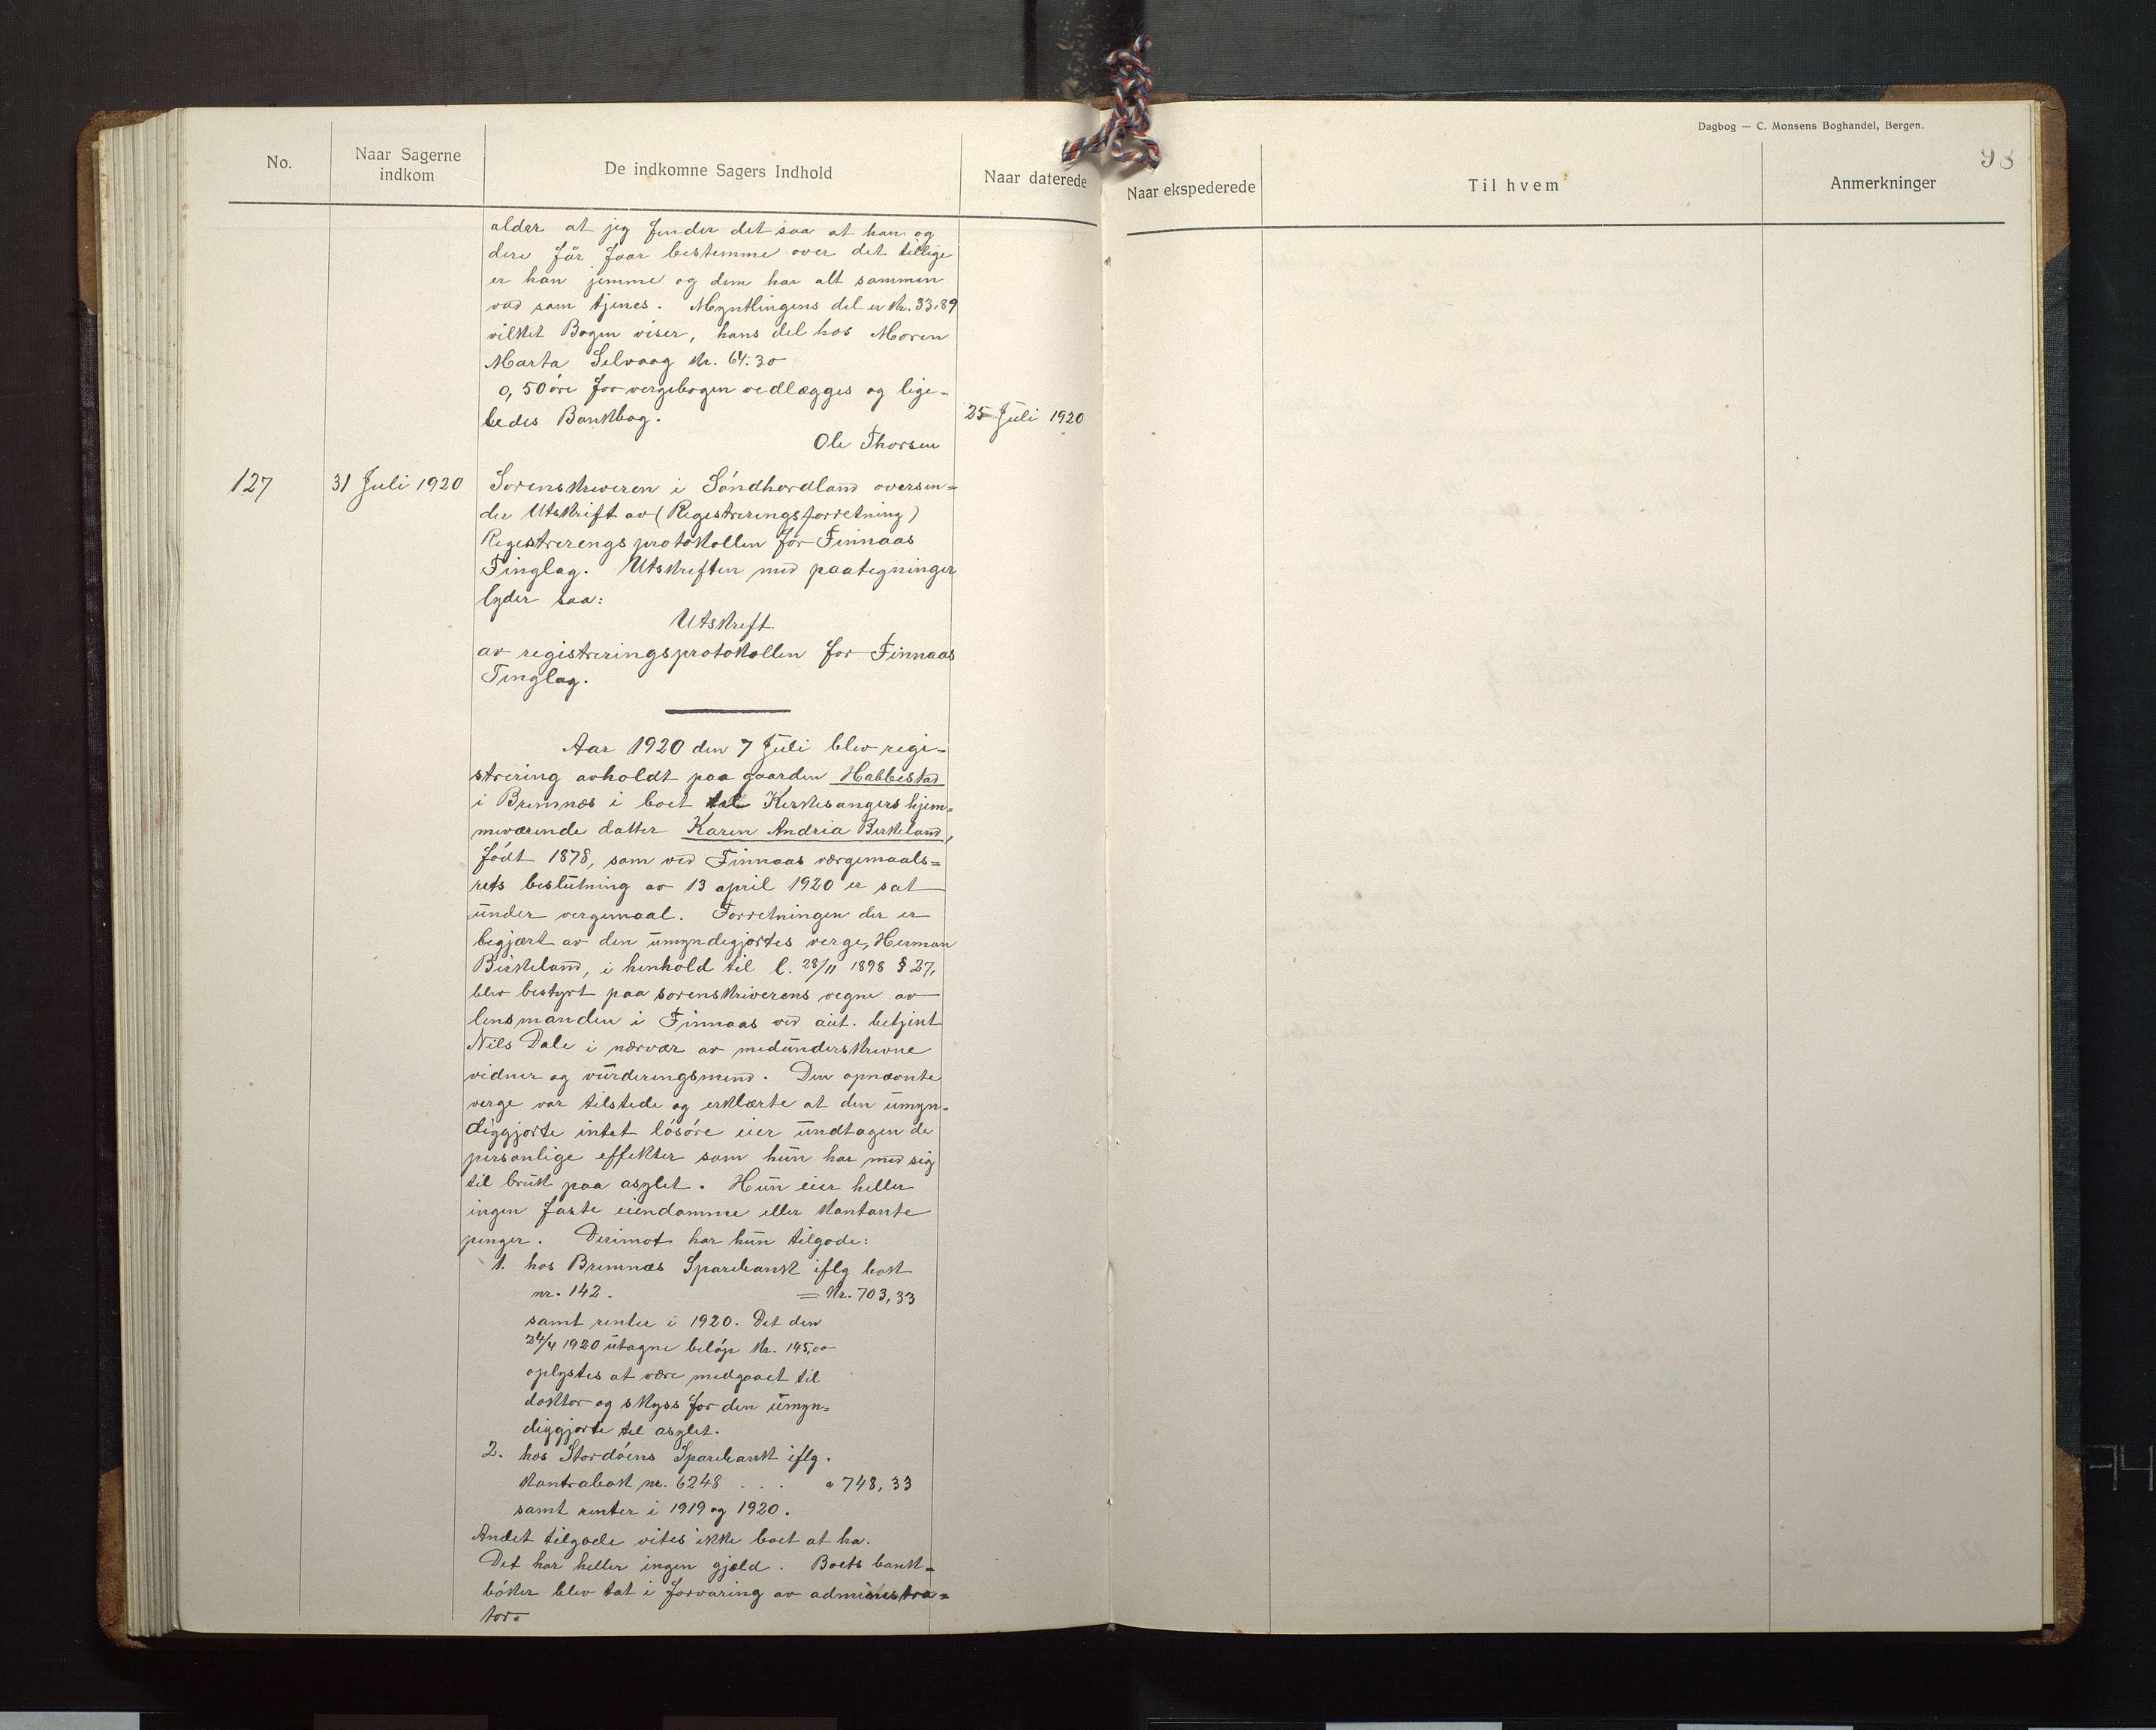 Dagbog — C. Monsens Boghandel, Bergen.
98
No.
Naar Sagerne
indkom
De indkomne Sagers Indhold
Naar daterede
Naar ekspederede
Til hvem
Anmerkninger
alder at jeg finder det saa at han og
dere får faar bestemme over det tillige
er han jemme og dem har alt sammen
vad som tjenes. Myntlingens del er kr. 33,89
vilket Bogen viser, hans del hos Moren
Marta Selvaag kr. 64.30
0,50 öre for vergebogen vedlægges og lige-
ledes Bankbog.
25 Juli 1920
Ole Thorsen
127
31 Juli 1920
Sorenskriveren i Söndhordland oversen=
der Utskrift av (Registreringsforretning)
Registrerengsprotokollen for Finnaas
Tinglag. Utskriften med paategninger
lyder saa:
Utskrift.
av registreringsprotokollen for Finnaas
Tinglag.
Aar 1920 den 7 Juli blev regi-
strering avholdt paa gaarden Habbestad
i Bremnes i boet til Kirkesangers hjem=
meværende datter Karen Andria Birkeland,
födt 1878, som ved Finnaas værgemaals=
rets beslutning av 13 april 1920 er sat
under vergemaal. Forretningen der er
begjært av den umyndigjortes verge, Herman
Birkeland, i henhold til l. 28/11 1898 § 27,
blev bestyrt paa sorenskriverens vegne av
lensmanden i Finnaas ved aut. betjent
Nils Dale i nærvær av medunderskrevne
vidner og vurderingsmend. Den opnævnte
verge var tilstede og erklærte at den umyn-
diggjorte intet lösöre eier undtagen de
personlige effekter som hun har med sig
til bruk paa asylet. Hun eier heller
ingen faste eiendomme eller kontante
penger. Derimot har hun tilgode:
1. hos Bremnes Sparebank iflg bok
nr. 142. = Kr. 703,33
samt renter i 1920. Det den
24/4 1920 utagne belöp kr. 145,00
oplystes at være medgaaet til
doktor og skyss for den umyn=
diggjorte til asylet.
2. hos Stordöens Sparebank iflg.
Kontrabok nr. 6248 . . . " 748,33
samt renter i 1919 og 1920.
Andet tilgode vites ikke boet at ha.
Det har heller ingen gjæld. Boets bank=
böker blev tat i forvaring av administra=
tor.